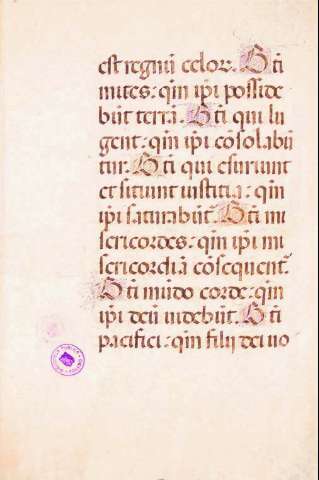 est regnū celoꝝ. Bti
mites: qm̄ ip̄i posside
būt terrā. Bti qui lu
gent: qm̄ ip̄i cōsolabū
tur. Bti qui esuriunt
et sitiunt iustitiā: qm̄
ip̄i saturabūt. Bti mi
sericordes: qm̄ ip̄i mi
sericordiā cōsequent᷑
Bti mūdo corde: qm̄
ip̄i deū uidebūt. Bti
pacifici: qm̄ filij dei uo